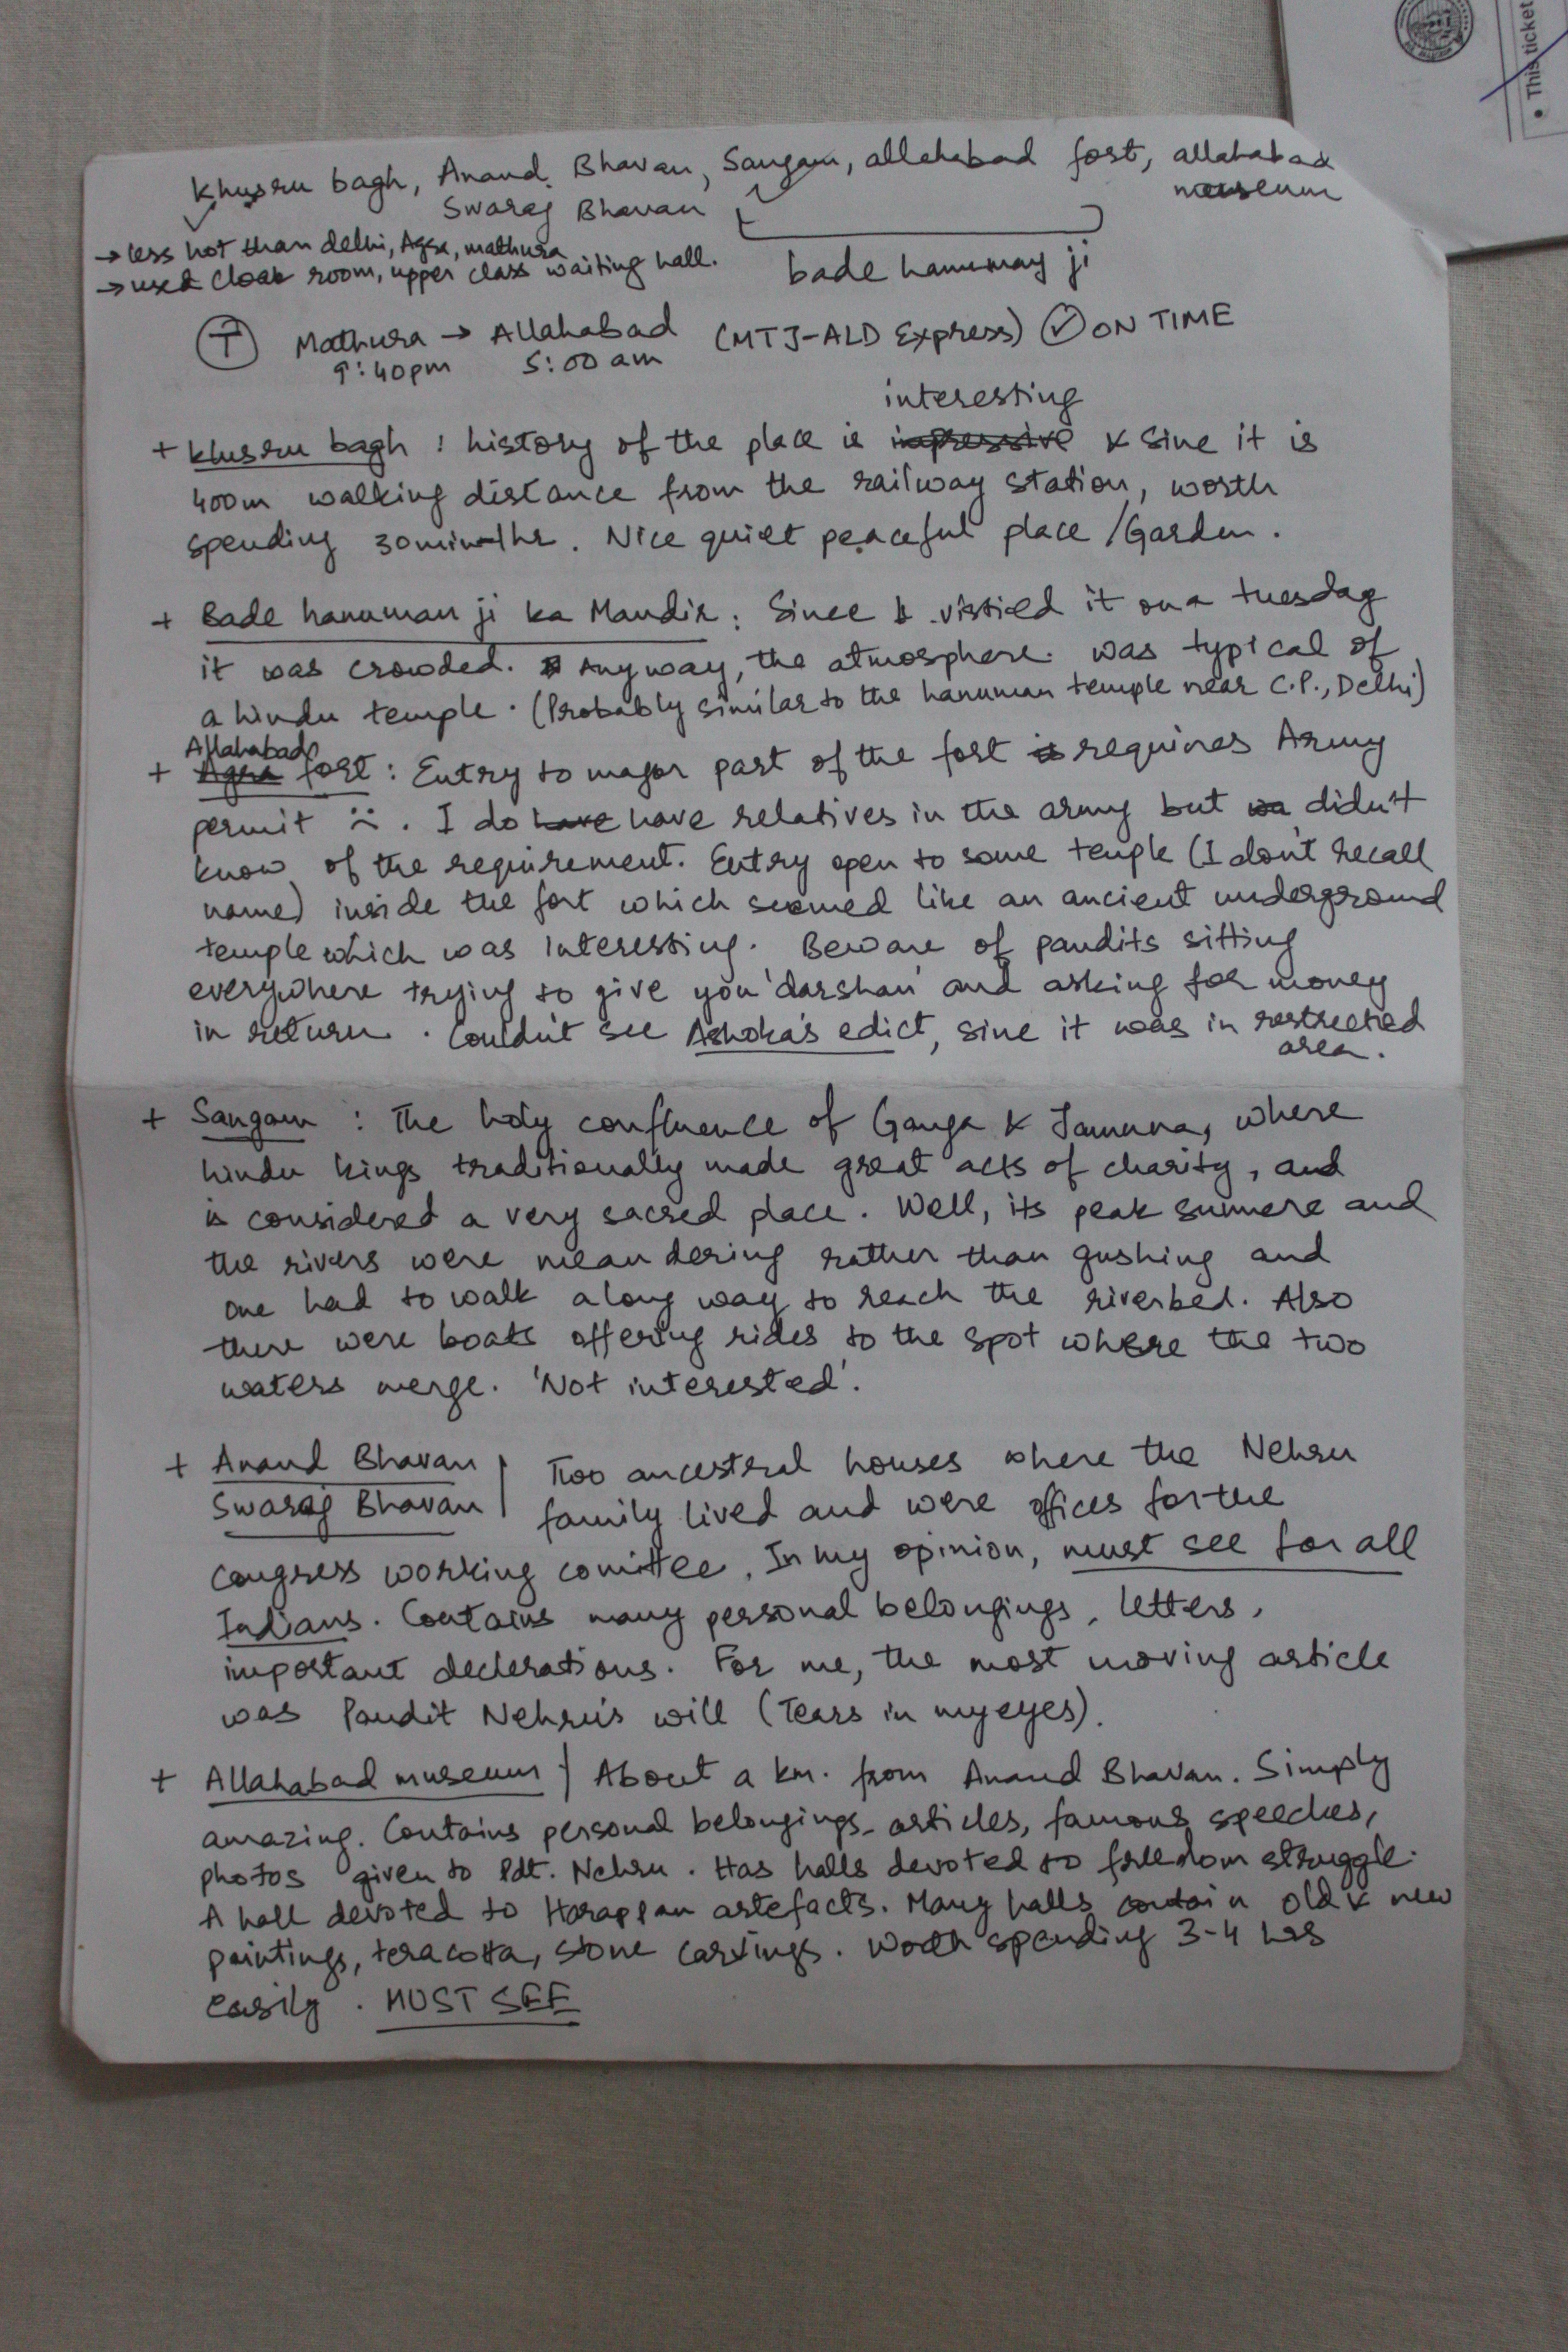 Khusru bagh, Anand Bhavan, Sangam, allahabad fort, allahabad
Swaraj Bhavan museum
→ less hot than delhi, Agra, mathura
→ used Cloak room, upper class waiting hall.
bade hanuman ji
T Mathura → Allahabad (MTJ-ALD Express) ✓ ON TIME
9:40pm 5:00 am
interesting
+ khusru bagh : history of the place is impressive & sine it is
400m walking distance from the railway station, worth
spending 30min-1hr. Nice quiet peaceful place / Garden.
+ Bade hanuman ji ka Mandir : Since I visited it on a tuesday
it was crowded. Anyway, the atmosphere was typical of
a hindu temple. (Probably similar to the hanuman temple near C.P., Delhi)
Allahabad
+ Agra fort : Entry to major part of the fort is requires Army
permit :(. I do have have relatives in the army but didn't
know of the requirement. Entry open to some temple (I don't recall
name) inside the fort which seemed like an ancient underground
temple which was interesting. Beware of pandits sitting
everywhere trying to give you 'darshan' and asking for money
in return. Couldn't see Ashoka's edict, sine it was in restricted
area.
+ Sangam : The holy confluence of Ganga & Jamuna, where
hindu kings traditionally made great acts of charity, and
is considered a very sacred place. Well, its peak summere and
the rivers were meandering rather than gushing and
one had to walk a long way to reach the riverbed. Also
there were boats offering rides to the spot where the two
waters merge. 'Not interested'.
+ Anand Bhavan | Two ancestral houses where the Nehru
Swaraj Bhavan | family lived and were offices for the
congress working comittee. In my opinion, must see for all
Indians. Contains many personal belongings, letters,
important declerations. For me, the most moving article
was Pandit Nehru's will (Tears in my eyes).
+ Allahabad museum | About a km. from Anand Bhavan. Simply
amazing. Contains personal belongings, articles, famous speeches,
photos given to Pdt. Nehru. Has halls devoted to freedom struggle.
A hall devoted to Harappan artefacts. Many halls contain old & new
paintings, teracotta, stone carvings. Worth spending 3-4 hrs
easily. MUST SEE
• This ticket